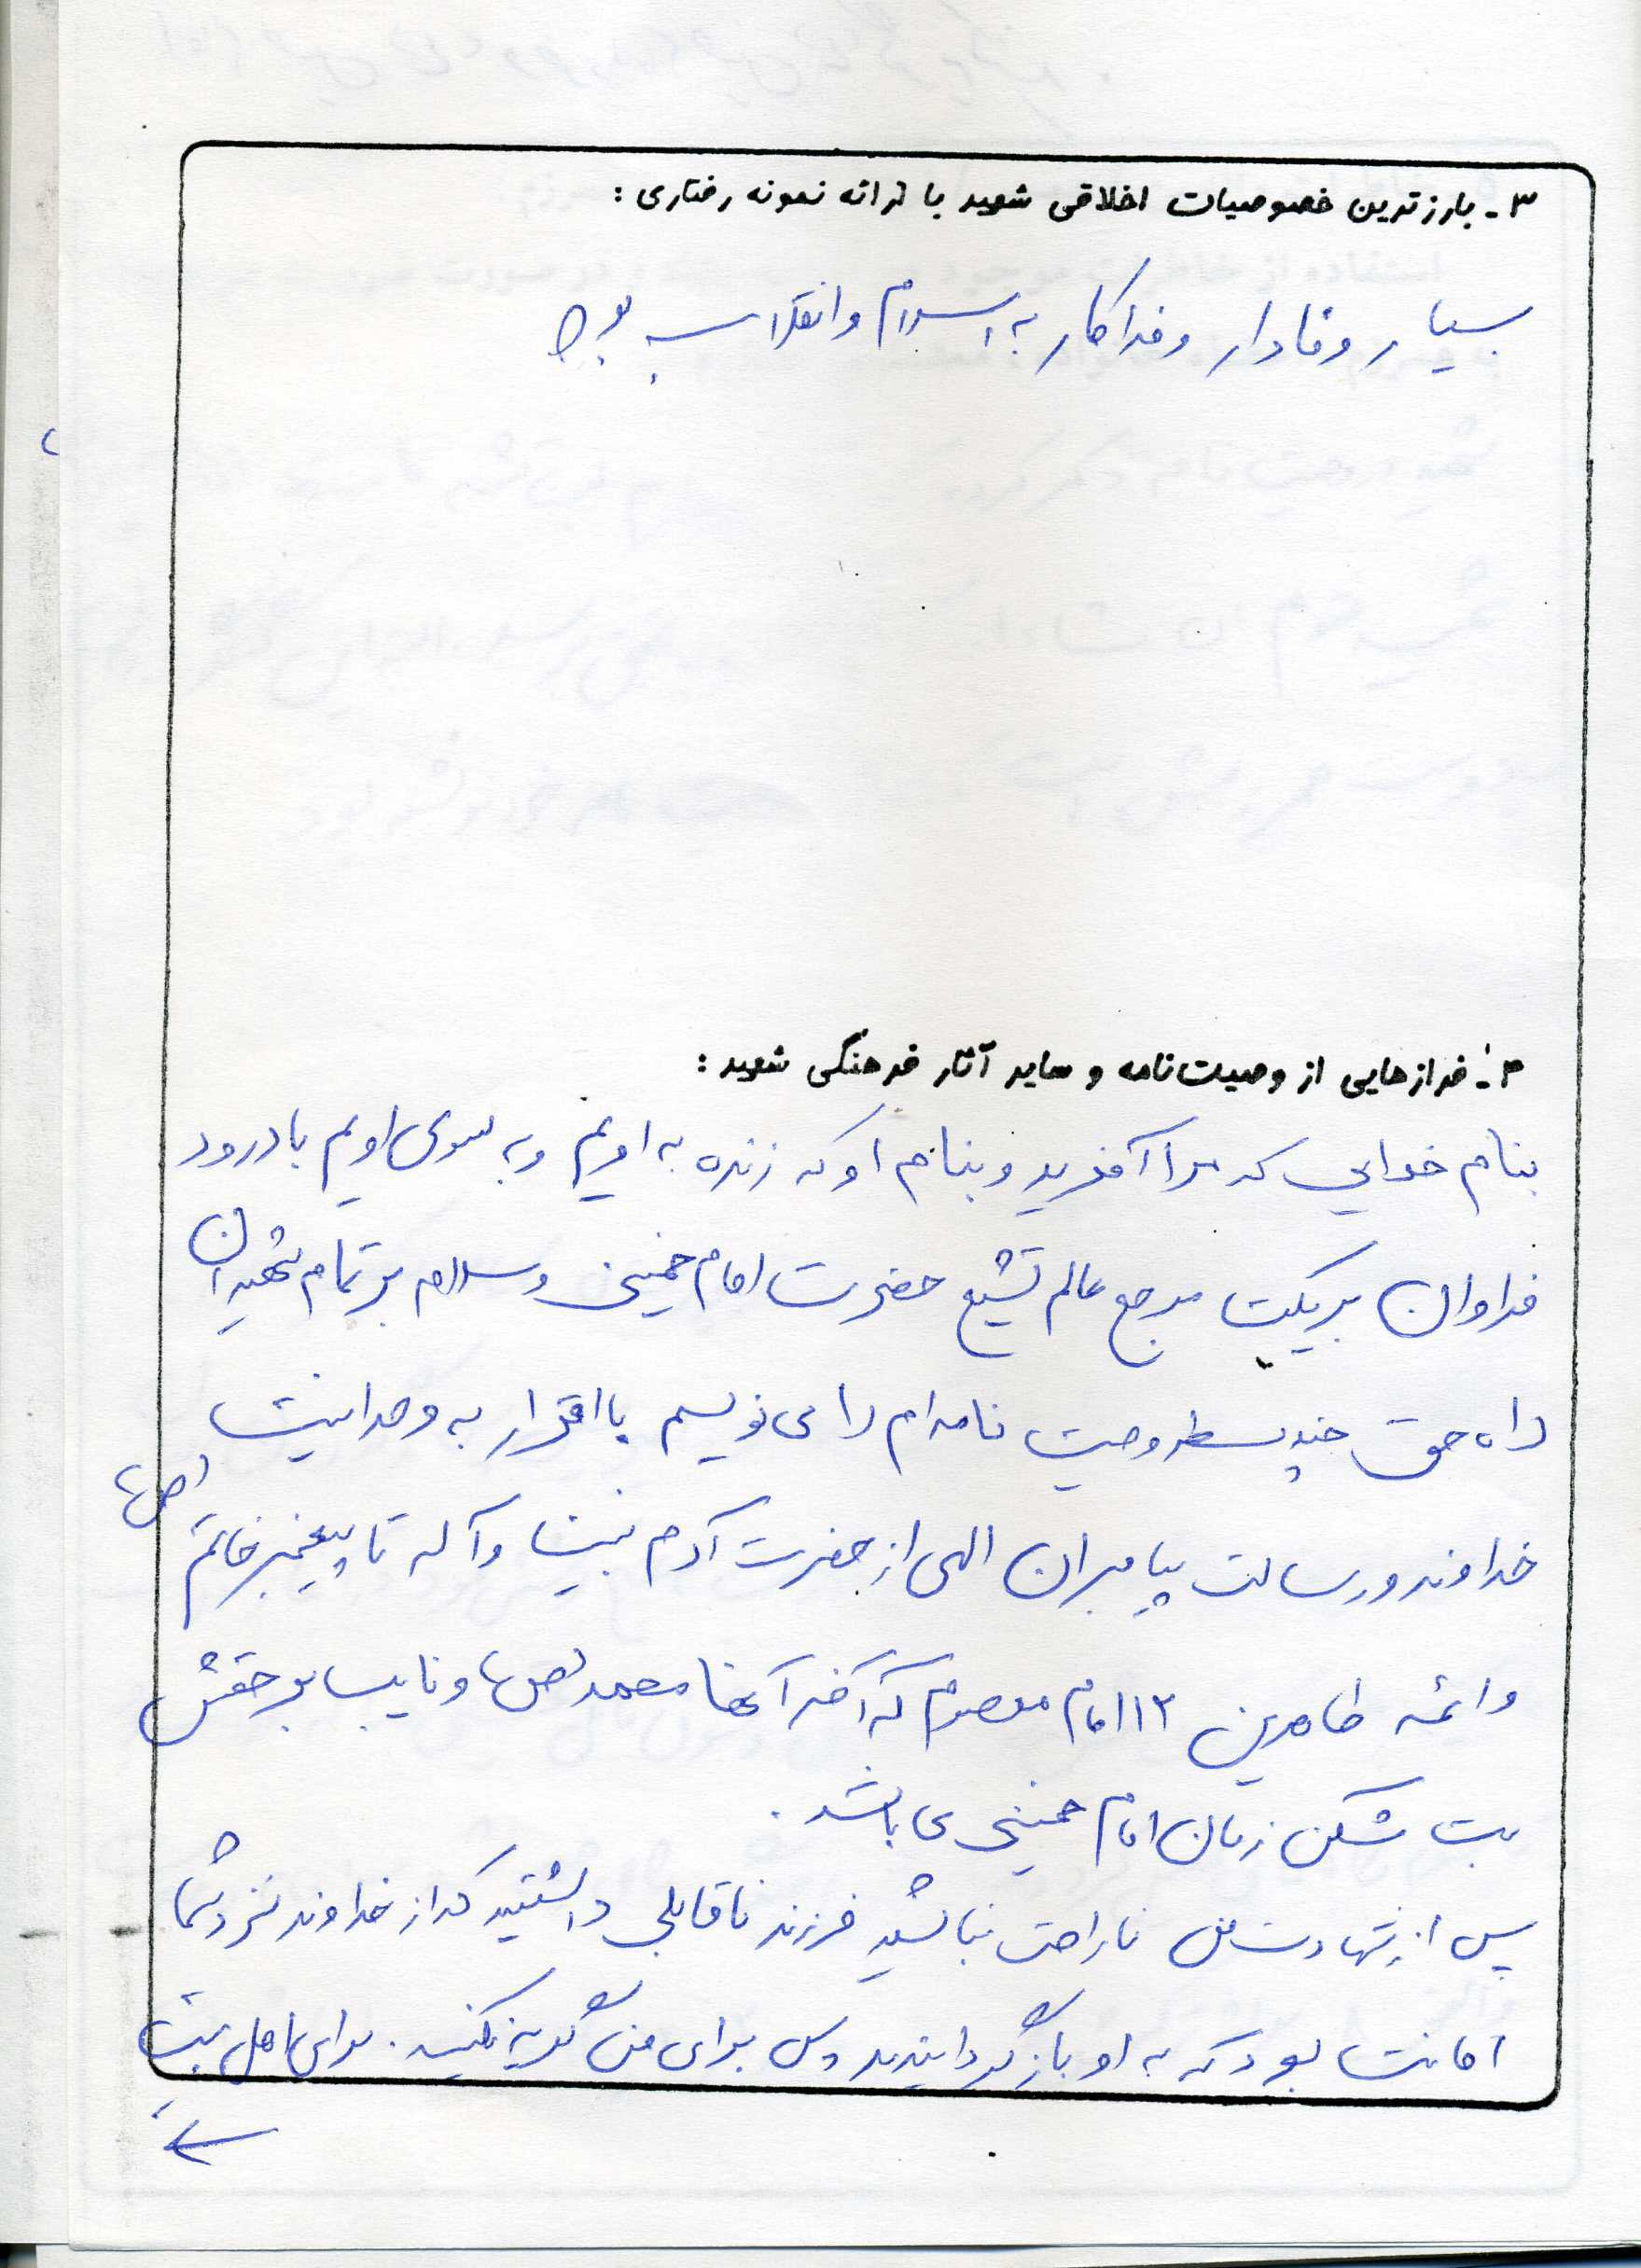 ۳ـ بارزترین خصوصیات اخلاقی شهید با ارائه نمونه رفتاری:
بسیار وفادار و فداکار به اسلام و انقلاب بود
۴ـ فرازهایی از وصیت‌نامه و سایر آثار فرهنگی شهید:
بنام خدایی که مرا آفرید و بنام او که زنده به اویم و به سوی اویم با درود
فراوان بر یکت مرجع عالم تشیع حضرت امام خمینی و سلام بر تمام شهیدان
راه حق چند سطر وصیت نامه ام را می نویسم با اقرار به وحدانیت
خداوند و رسالت پیامبران الهی از حضرت آدم نبینا و آله تا پیغمبر خاتم (ص)
و ائمه طاهرین ۱۲ امام معصوم که آخر آنها محمد (ص) و نایب بر حقش
بت شکن زمان امام خمینی می باشد.
پس از شهادت من ناراحت نباشید فرزند ناقابلی داشتید که از خداوند نزد شما
امانت بود که به او بازگردانیدید پس برای من گریه نکنید. برای اهل بیت